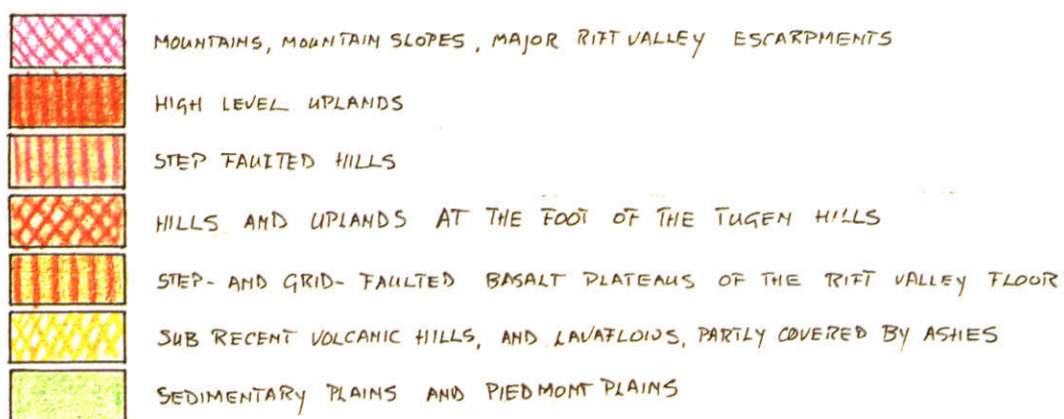 MOUNTAINS, MOUNTAIN SLOPES, MAJOR RIFT VALLEY ESCARPMENTS
HIGH LEVEL UPLANDS
STEP FAULTED HILLS
HILLS AND UPLANDS AT THE FOOT OF THE TUGEN HILLS
STEP- AND GRID- FAULTED BASALT PLATEAUS OF THE RIFT VALLEY FLOOR
SUB RECENT VOLCANIC HILLS, AND LAVAFLOWS, PARTLY COVERED BY ASHES
SEDIMENTARY PLAINS AND PIEDMONT PLAINS